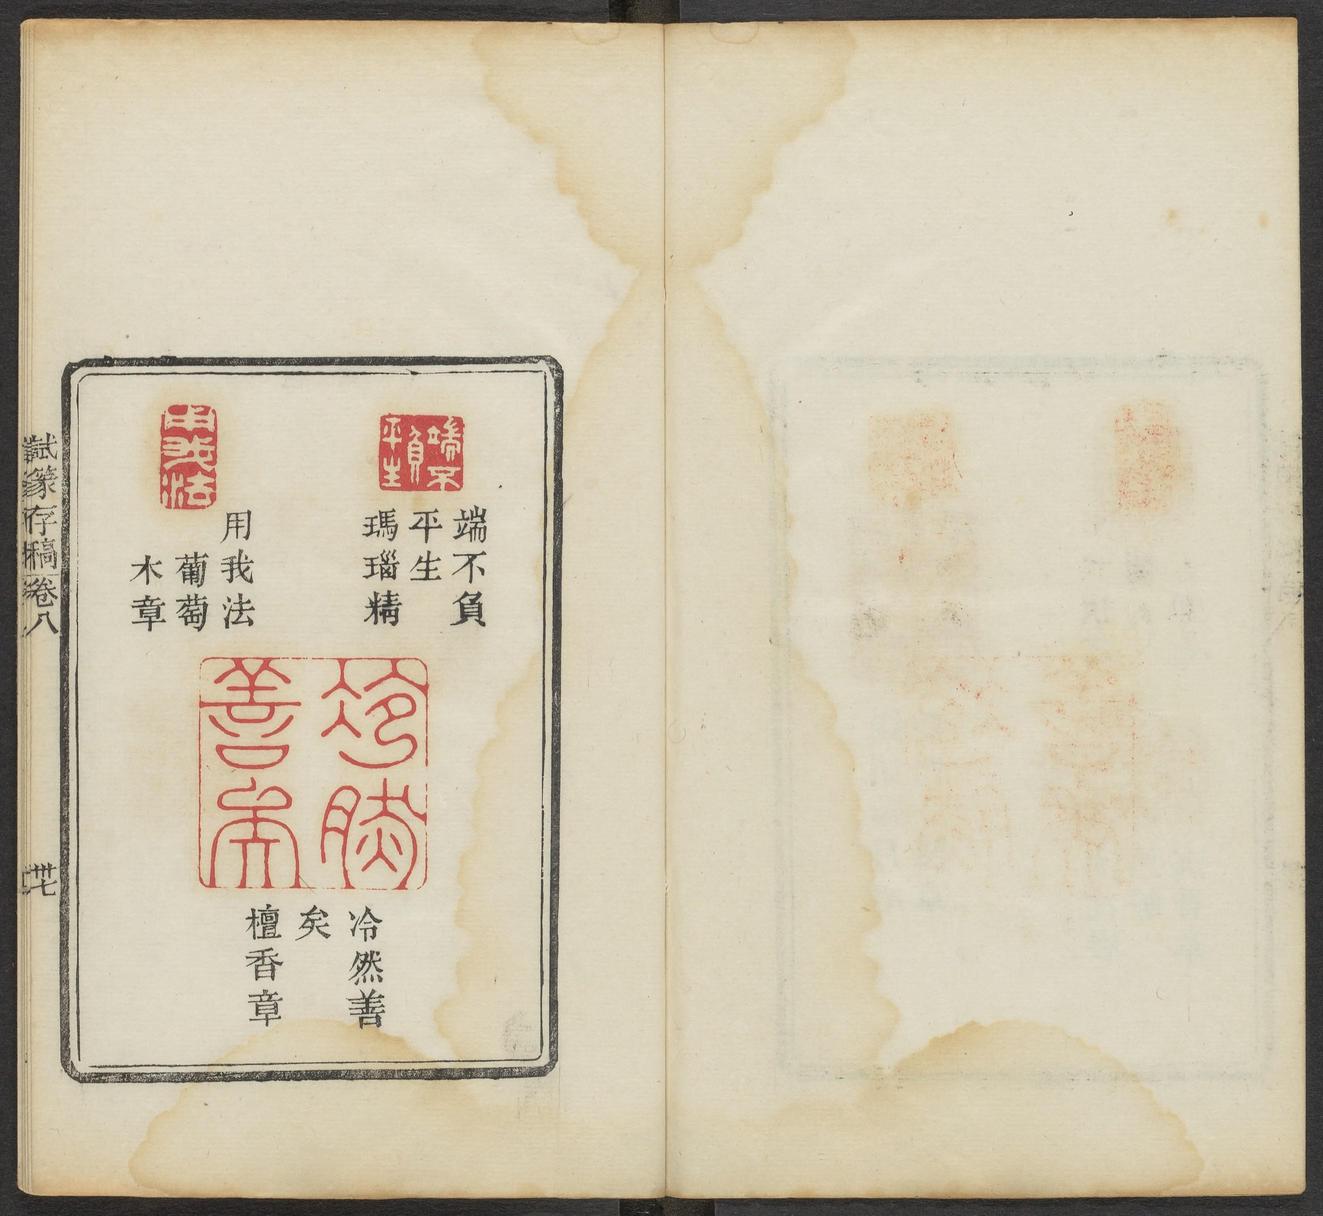 端不負
平生
瑪瑙精
端不負平生
用我法
葡萄
木章
用我法
冷然善矣
冷然善
矣
檀香章
試篆存稿卷八
卅七